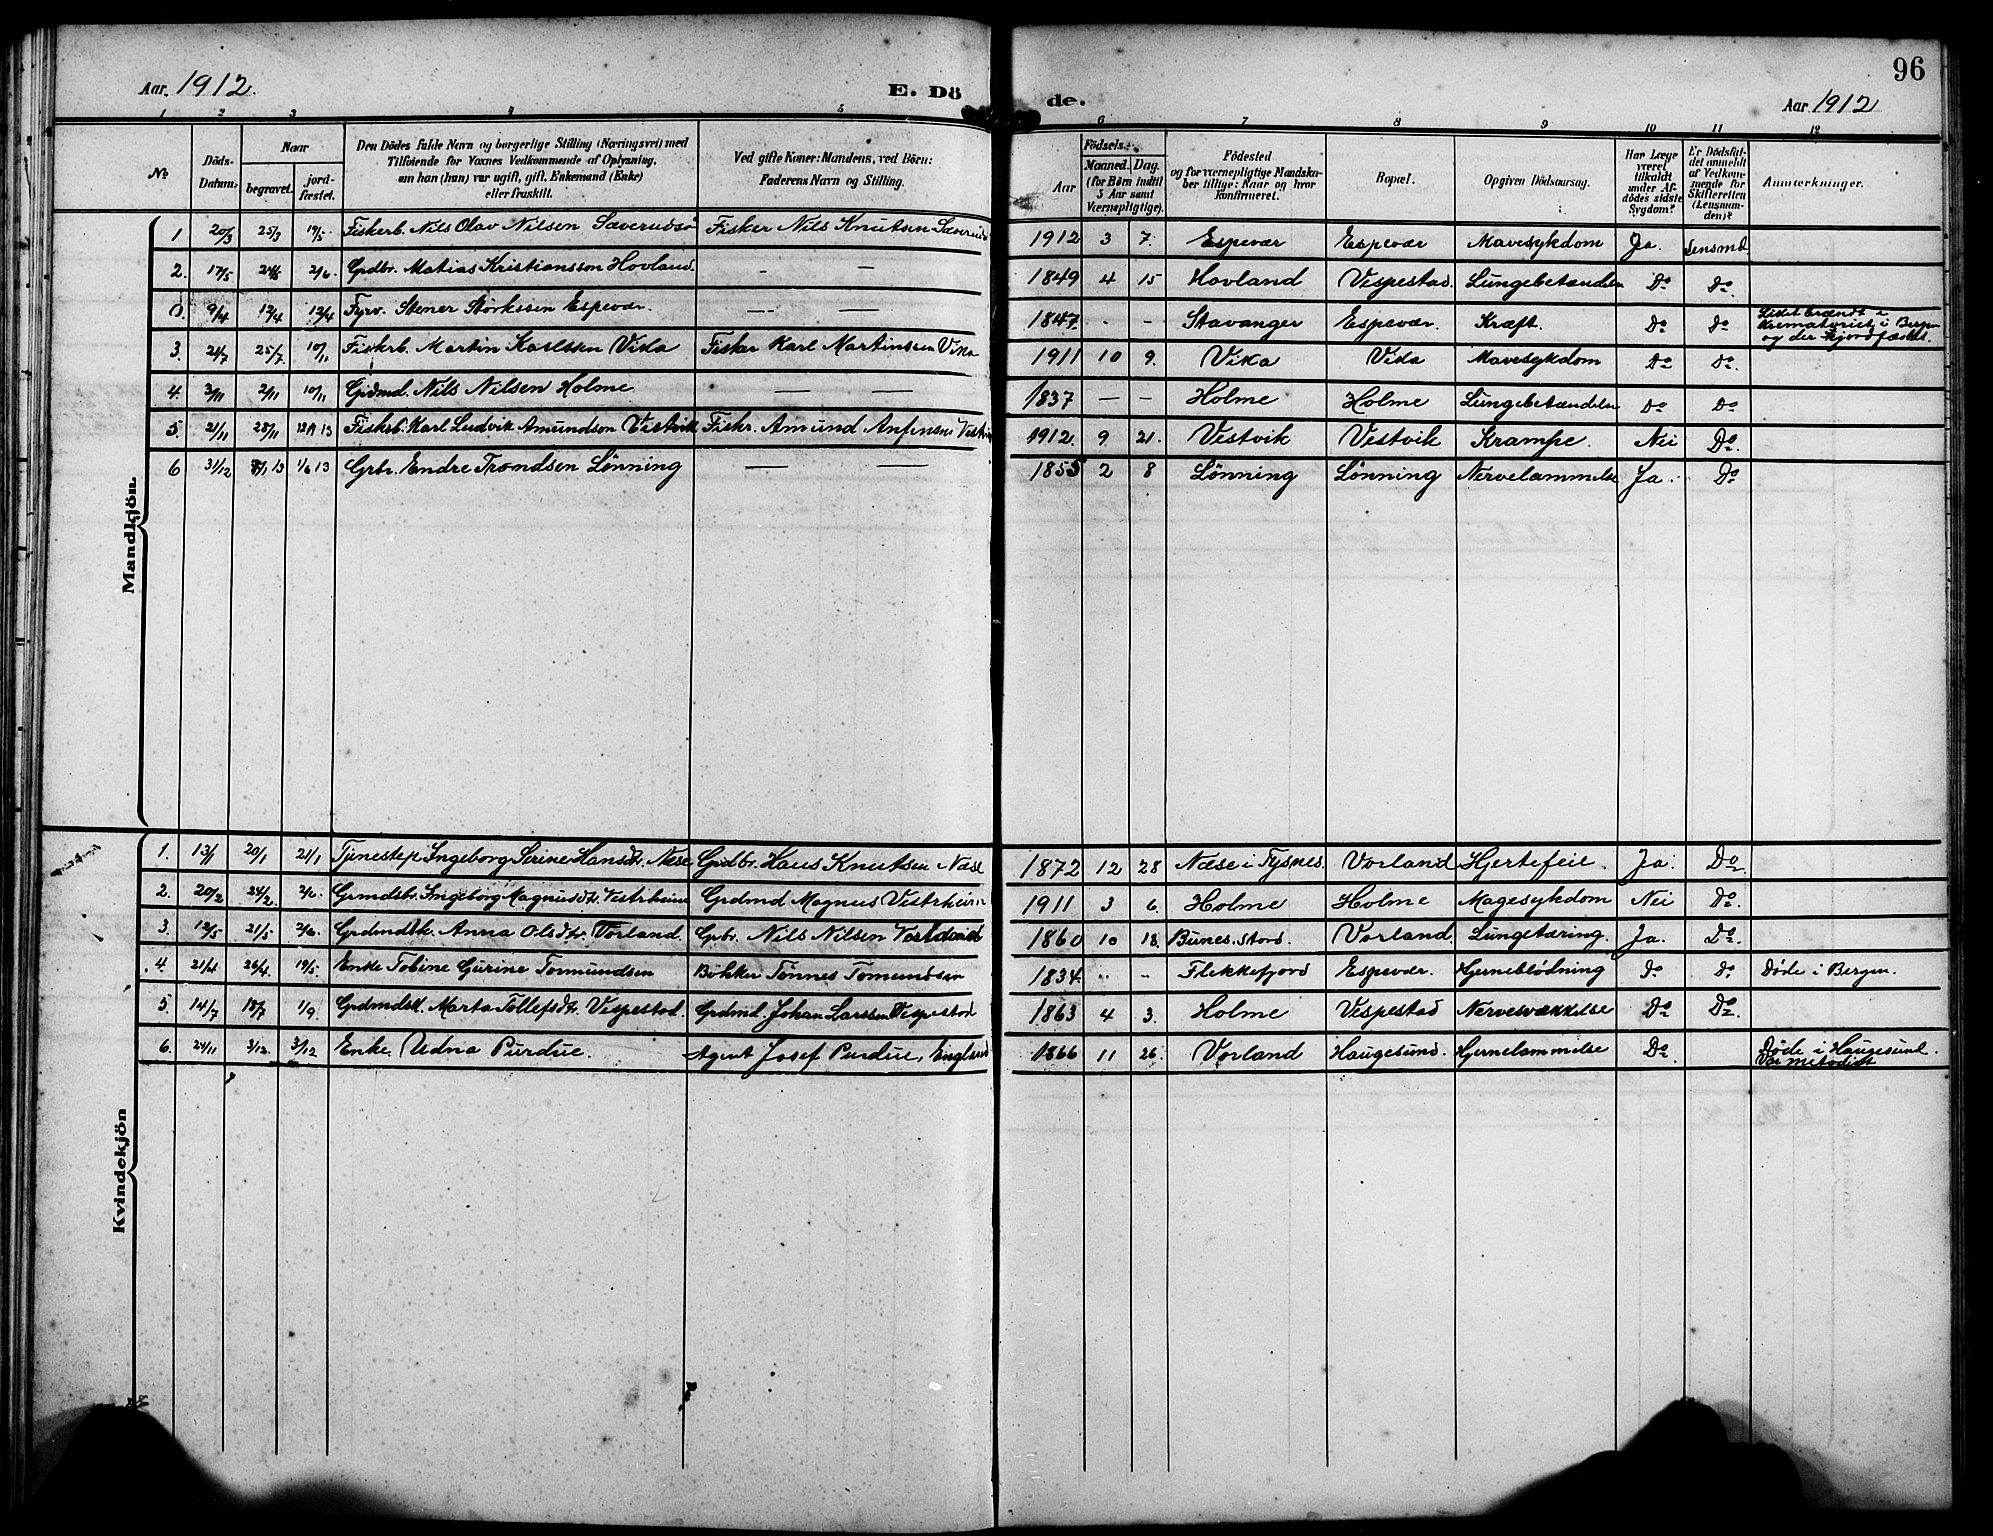 96
Aar. 1912.
E. Dö
de.
Aar 1912
1 2 3 4 5 6 7 8 9 10 11 12
№
Döds-
Datum.
Naar
begravet.
jord-
fæstet.
Den Dödes fulde Navn og borgerlige Stilling (Næringsvei) med
Tilföiende for Voxnes Vedkommende af Oplysning,
om han (hun) var ugift, gift, Enkemand (Enke)
eller fraskilt.
Ved gifte Koner: Mandens, ved Börn:
Faderens Navn og Stilling.
Födsels-
Aar
Maaned. Dag.
(for Börn indtil
5 Aar samt
Værnepligtige).
Födested
og for værnepligtige Mandska-
ber tillige: Naar og hvor
konfirmeret.
Bopæl.
Opgiven Dödsaarsag.
Har Læge
været
tilkaldt
under Af-
dödes sidste
Sygdom?
Er Dödsfal-
det anmeldt
af Vedkom-
mende for
Skifteretten
(Lensman-
den)?
Anmærkninger.
Mandkjön.
1 20/3 25/3 19/5 Fiskerb. Nils Olav Nilsen Sæverudsö Fisker Nils Knutsen 1912 3 7. Espevær Espevær Mavesykdom Ja. Lensmd
2. 17/5 24/5 2/6 Grdbr. Matias Kristiansson Hovland. — — 1849 4 15 Hovland Vespestad. Lungebetændelse Do Do
0. 9/4 12/4 12/4 Fyrv. Stener Størkssen Espevær. — — 1847 - - Stavanger Espevær. Kræft. Do Do Liket brændt i
Krematoriet i Bergen
og der
3. 21/7 25/7 10/11 Fiskerb. Martin Karlssen Vida Fisker Karl Martinssen Vika 1911 10 9. Vika Vida Mavesykdom Do Do
4. 3/11 2/11 10/11 Grdmd. Nils Nilsen Holme — — 1837 — — Holme Holme Lungebetændelse Do Do
5. 21/11 28/11 13 Fiskerb. Karl Ludvik Amundson Vestvik Fiskr. Amund 1912. 9 21. Vestvik Vestvik Krampe. Nei Do
6 31/12 13 1/6 13 Grbr. Endre Trondsen Lønning — — 1855 2 8 Lønning Lønning Nervelammelse Ja. Do
Kvindekjön
1. 13/1 20/1 21/1 Tjenestep. Ingeborg Serine Hansdtr. Næse Grdbr. Hans Knutsen Næse 1872 12 28 Næse i Tysnes. Vorland Hjertefeie. Ja. Do
2. 20/2 24/2 2/6. Ingeborg Magnusdtr. Vestrheim Grdmd Magnus Vestrheim 1911 3 6. Holme Holme Magesykdom Nei Do
3. 12/5 21/5 2/6. Grdmdsk. Anna Olsdtr. Vorland. Grbr. Nils Nilsen 1860 10 18. Bunes. Stord. Vorland. Lungetæring. Ja. Do
4. 21/4 26/4. 19/5. Enke Tobine Gurine Tormundsen Bökker Tönnes Tomundsen 1834. - - Flekkefjord Espevær. Hjerneblödning Do Do Döde i Bergen.
5 14/7 18/7 1/9. Grdmdsk. Marta Tollefsdtr. Vespestad. Grdmd. Johan Larssen Vespestad 1863 4 3. Holme Vespestad Nervesvækkelse Do Do
6. 24/11 3/12. 3/12 Enke. Udna Purdue. Agent Josef Purdue, England 1866 11 26. Vorland Haugesund. Hjernelammelse Do. Döde i Haugesund.
Var metodist